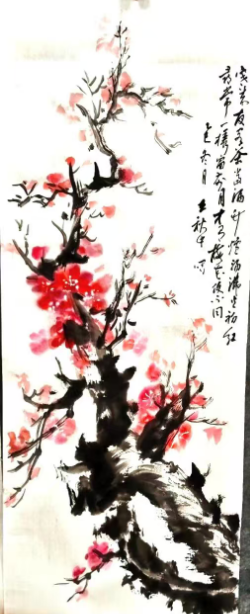 寒夜客来茶当酒竹炉汤沸火初红
尋常一樣窗前月才有梅花便不同
冬月